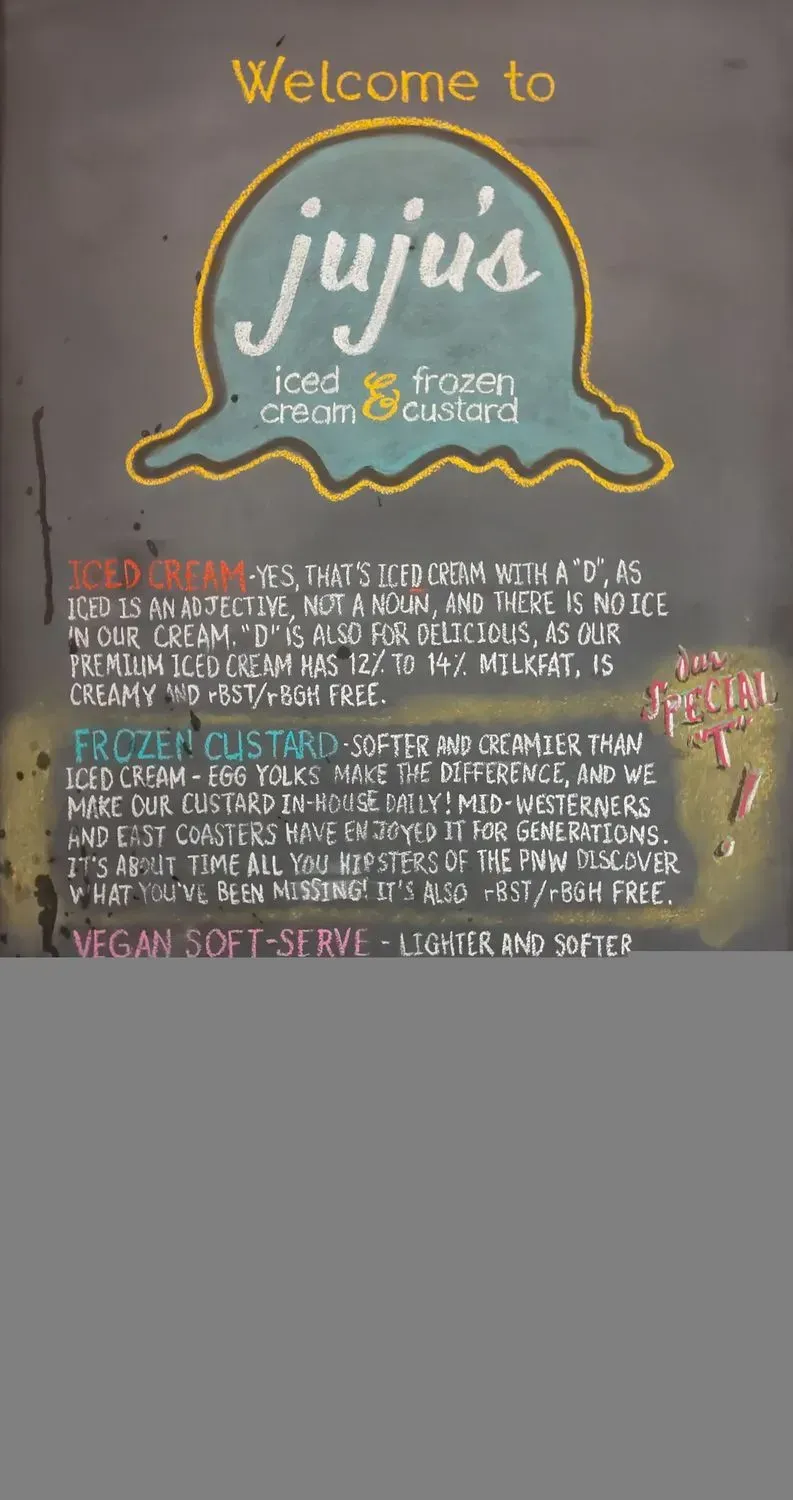 Welcome to
juju's
iced cream & frozen custard
ICED CREAM - YES, THAT'S ICED CREAM WITH A "D", AS
ICED IS AN ADJECTIVE, NOT A NOUN, AND THERE IS NO ICE
IN OUR CREAM. "D" IS ALSO FOR DELICIOUS, AS OUR
PREMIUM ICED CREAM HAS 12% TO 14% MILKFAT, IS
CREAMY AND rBST/rBGH FREE.
our
SPECIAL
"T"
!
FROZEN CUSTARD - SOFTER AND CREAMIER THAN
ICED CREAM - EGG YOLKS MAKE THE DIFFERENCE, AND WE
MAKE OUR CUSTARD IN-HOUSE DAILY! MID-WESTERNERS
AND EAST COASTERS HAVE ENJOYED IT FOR GENERATIONS.
IT'S ABOUT TIME ALL YOU HIPSTERS OF THE PNW DISCOVER
WHAT YOU'VE BEEN MISSING! IT'S ALSO rBST/rBGH FREE.
VEGAN SOFT-SERVE - LIGHTER AND SOFTER